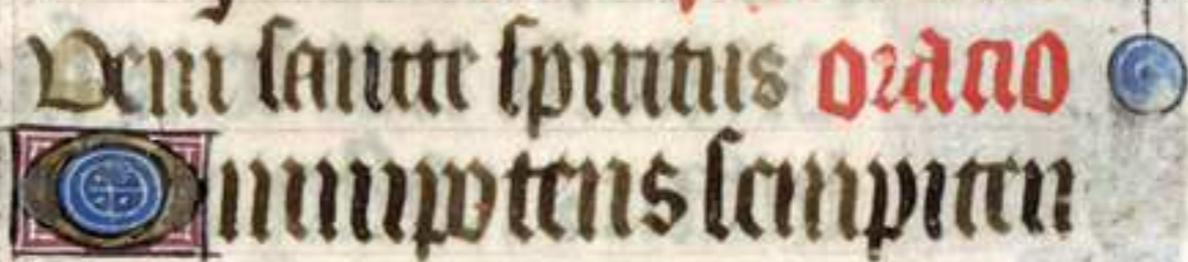 Veni sancte spiritus oracio
Omnipotens sempitern